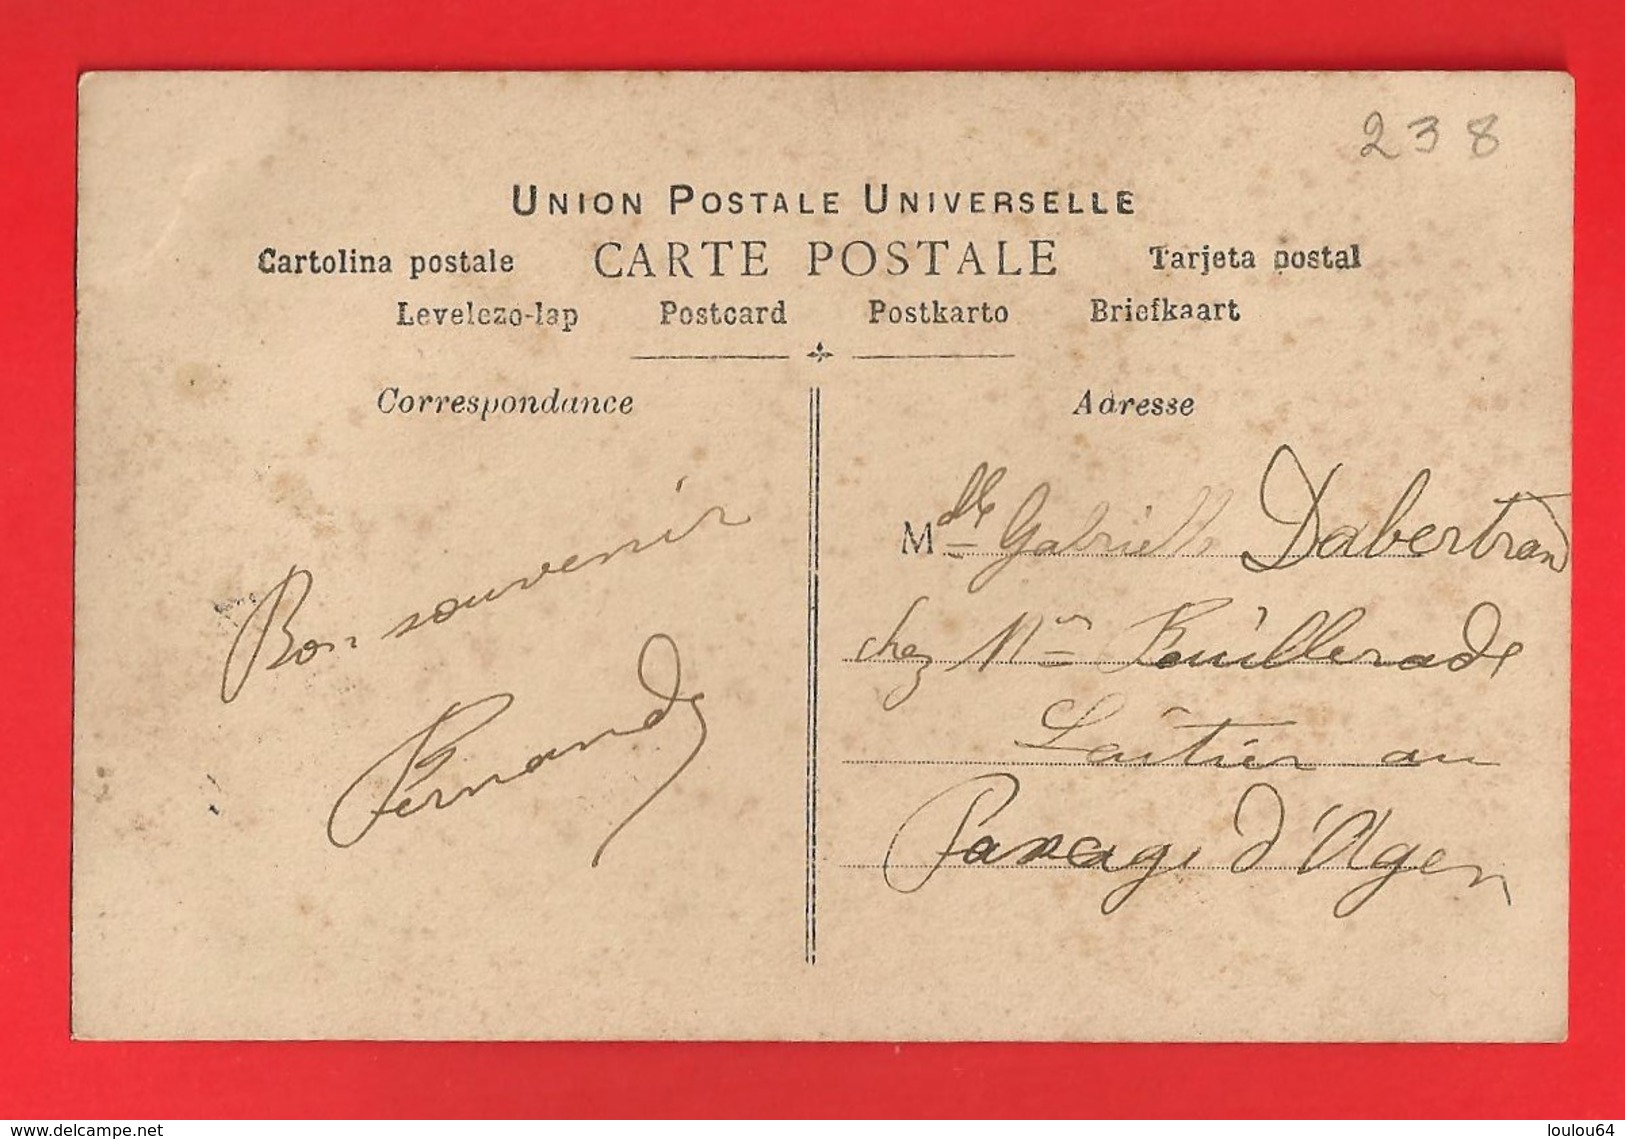 238
UNION POSTALE UNIVERSELLE
Cartolina postale CARTE POSTALE Tarjeta postal
Levelezo-lap Postcard Postkarto Briefkaart
Correspondance
Bon souvenir
Fernande
Adresse
Mdlle Gabrielle Dabertrand
chez Mr
Laitier au
d'Agen
www.delcampe.net
loulou64